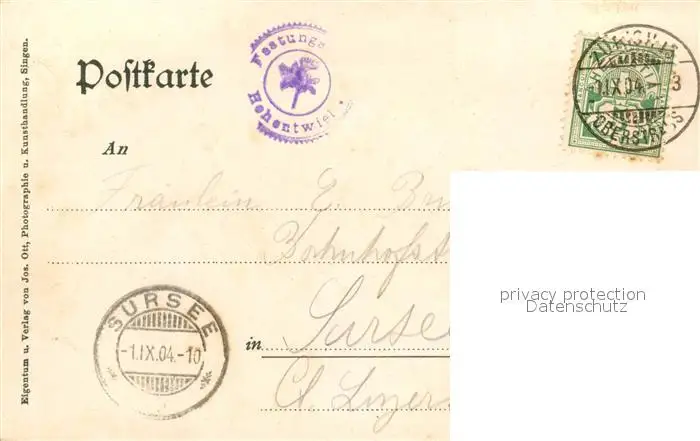 Eigentum u. Verlag von Jos. Ott, Photographie u. Kunsthandlung, Singen.
Postkarte
Festungs
Hohentwiel
-1.IX.04.- 3
OBERSTRASS
An
Fräulein E.
Bahnhofst
SURSEE
-1.IX.04.-10
in Sursee
Ct. Luzern
privacy protection
Datenschutz